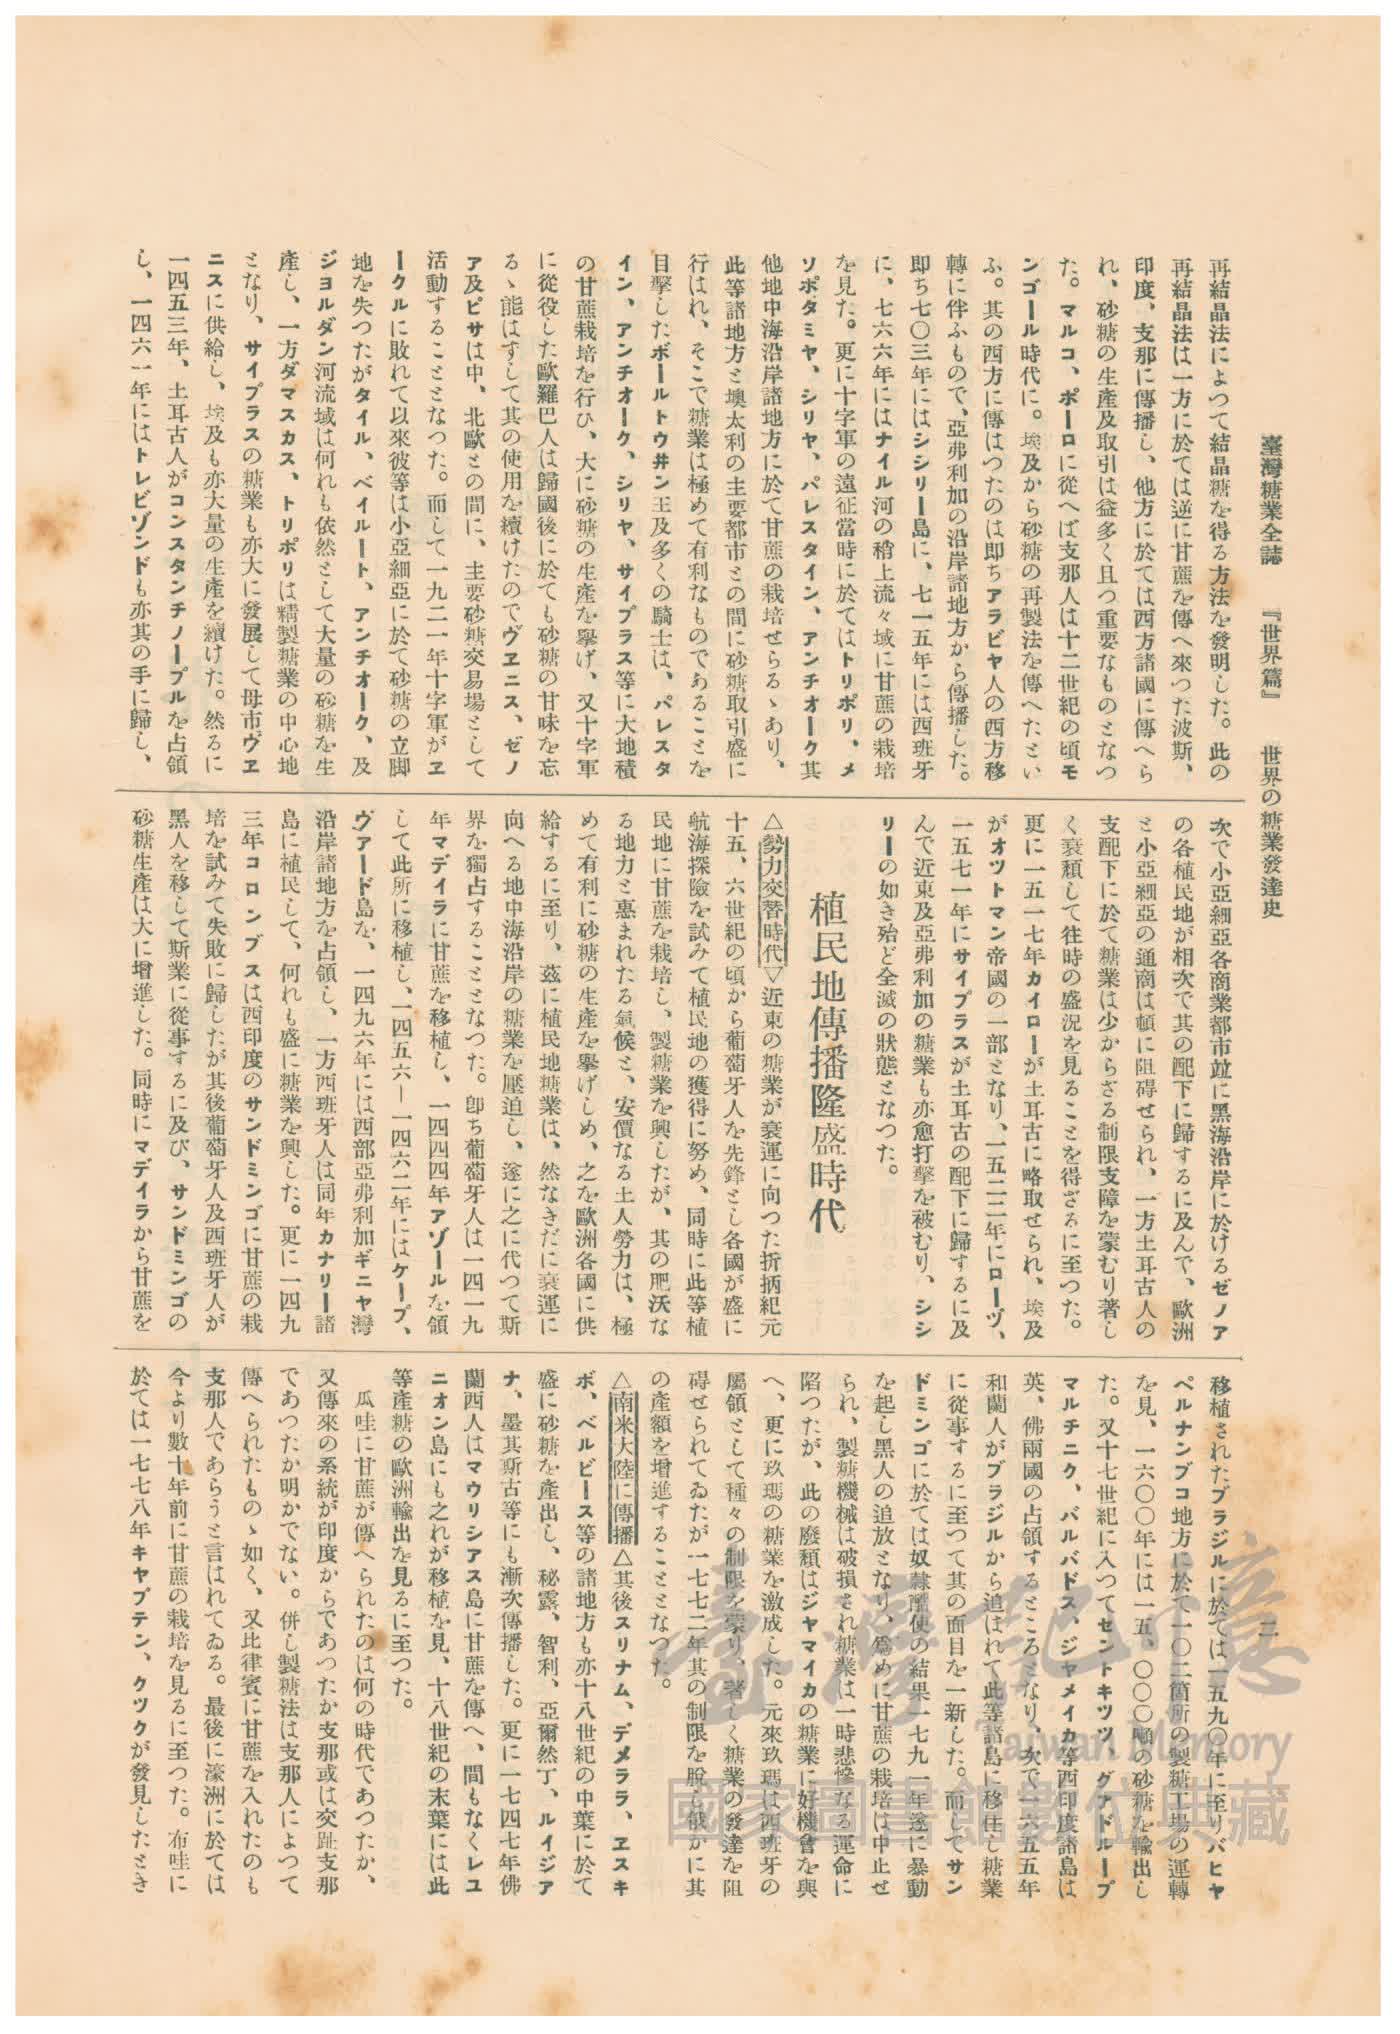 臺灣糖業全誌　『世界篇』　世界の糖業發達史
二
再結晶法によつて結晶糖を得る方法を發明した。此の
再結晶法は一方に於ては逆に甘蔗を傳へ來つた波斯、
印度、支那に傳播し、他方に於ては西方諸國に傳へら
れ、砂糖の生產及取引は益多く且つ重要なものとなつ
た。マルコ、ポーロに從へば支那人は十二世紀の頃モ
ンゴール時代に。埃及から砂糖の再製法を傳へたとい
ふ。其の西方に傳はつたのは卽ちアラビヤ人の西方移
轉に伴ふもので、亞弗利加の沿岸諸地方から傳播した。
卽ち七〇三年にはシシリー島に、七一五年には西班牙
に、七六六年にはナイル河の稍上流々域に甘蔗の栽培
を見た。更に十字軍の遠征當時に於てはトリポリ、メ
ソポタミヤ、シリヤ、パレスタイン、アンチオーク其
他地中海沿岸諸地方に於て甘蔗の栽培せらるゝあり、
此等諸地方と墺太利の主要都市との間に砂糖取引盛に
行はれ、そこで糖業は極めて有利なものであることを
目擊したボールトウ井ン王及多くの騎士は、パレスタ
イン、アンチオーク、シリヤ、サイプラス等に大地積
の甘蔗栽培を行ひ、大に砂糖の生產を擧げ、又十字軍
に從役した歐羅巴人は歸國後に於ても砂糖の甘味を忘
るゝ能はずして其の使用を續けたのでヴエニス、ゼノ
ア及ピサは中、北歐との間に、主要砂糖交易場として
活動することとなつた。而して一九二一年十字軍がエ
ークルに敗れて以來彼等は小亞細亞に於て砂糖の立脚
地を失つたがタイル、ベイルート、アンチオーク、及
ジヨルダン河流域は何れも依然として大量の砂糖を生
產し、一方ダマスカス、トリポリは精製糖業の中心地
となり、サイプラスの糖業も亦大に發展して母市ヴエ
ニスに供給し、埃及も亦大量の生產を續けた。然るに
一四五三年、土耳古人がコンスタンチノープルを占領
し、一四六一年にはトレビゾンドも亦其の手に歸し、
次で小亞細亞各商業都市竝に黑海沿岸に於けるゼノア
の各植民地が相次で其の配下に歸するに及んで、歐洲
と小亞細亞の通商は頓に阻碍せられ、一方土耳古人の
支配下に於て糖業は少からざる制限支障を蒙むり著し
く衰頽して往時の盛況を見ることを得ざるに至つた。
更に一五一七年カイローが土耳古に略取せられ、埃及
がオツトマン帝國の一部となり、一五二二年にローヴ、
一五七一年にサイプラスが土耳古の配下に歸するに及
んで近東及亞弗利加の糖業も亦愈打擊を被むり、シシ
リーの如き殆ど全滅の狀態となつた。
植民地傳播隆盛時代
△勢力交替時代▽近東の糖業が衰運に向つた折柄紀元
十五、六世紀の頃から葡萄牙人を先鋒とし各國が盛に
航海探險を試みて植民地の獲得に努め、同時に此等植
民地に甘蔗を栽培し、製糖業を興したが、其の肥沃な
る地力と惠まれたる氣候と、安價なる土人勞力は、極
めて有利に砂糖の生產を擧げしめ、之を歐洲各國に供
給するに至り、茲に植民地糖業は、然なきだに衰運に
向へる地中海沿岸の糖業を壓迫し、遂に之に代つて斯
界を獨占することとなつた。卽ち葡萄牙人は一四一九
年マデイラに甘蔗を移植し、一四四四年アゾールを領
して此所に移植し、一四五六―一四六二年にはケープ、
ヴァード島を、一四九六年には西部亞弗利加ギニヤ灣
沿岸諸地方を占領し、一方西班牙人は同年カナリー諸
島に植民して、何れも盛に糖業を興した。更に一四九
三年コロンブスは西印度のサンドミンゴに甘蔗の栽
培を試みて失敗に歸したが其後葡萄牙人及西班牙人が
黑人を移して斯業に從事するに及び、サンドミンゴの
砂糖生產は大に增進した。同時にマデイラから甘蔗を
移植されたブラジルに於ては一五九〇年に至りバヒヤ
ペルナンブコ地方に於て一〇二箇所の製糖工場の運轉
を見、一六〇〇年には一五、〇〇〇噸の砂糖を輸出し
た。又十七世紀に入つてセントキツツ、グアドループ
マルチニク、バルバドス、ジヤメイカ等西印度諸島は
英、佛兩國の占領するところとなり、次で一六五五年
和蘭人がブラジルから追はれて此等諸島に移住し糖業
に從事するに至つて其の面目を一新した。而してサン
ドミンゴに於ては奴隸酷使の結果一七九一年遂に暴動
を起し黑人の追放となり、爲めに甘蔗の栽培は中止せ
られ、製糖機械は破損され糖業は一時悲慘なる運命に
陷つたが、此の廢頽はジヤマイカの糖業に好機會を與
へ、更に玖瑪の糖業を激成した。元來玖瑪は西班牙の
屬領として種々の制限を蒙り、著しく糖業の發達を阻
碍せられてゐたが一七七二年其の制限を脫し俄かに其
の產額を增進することとなつた。
△南米大陸に傳播△其後スリナム、デメララ、エスキ
ボ、ベルビース等の諸地方も亦十八世紀の中葉に於て
盛に砂糖を產出し、秘露、智利、亞爾然丁、ルイジア
ナ、墨其斯古等にも漸次傳播した。更に一七四七年佛
蘭西人はマウリシアス島に甘蔗を傳へ、間もなくレユ
ニオン島にも之れが移植を見、十八世紀の末葉には此
等產糖の歐洲輸出を見るに至つた。
瓜哇に甘蔗が傳へられたのは何の時代であつたか、
又傳來の系統が印度からであつたか支那或は交趾支那
であつたか明かでない。併し製糖法は支那人によつて
傳へられたものゝ如く、又比律賓に甘蔗を入れたのも
支那人であらうと言はれてゐる。最後に濠洲に於ては
今より數十年前に甘蔗の栽培を見るに至つた。布哇に
於ては一七七八年キヤプテン、クツクが發見したとき
臺灣記憶
Taiwan Memory
國家圖書館數位典藏